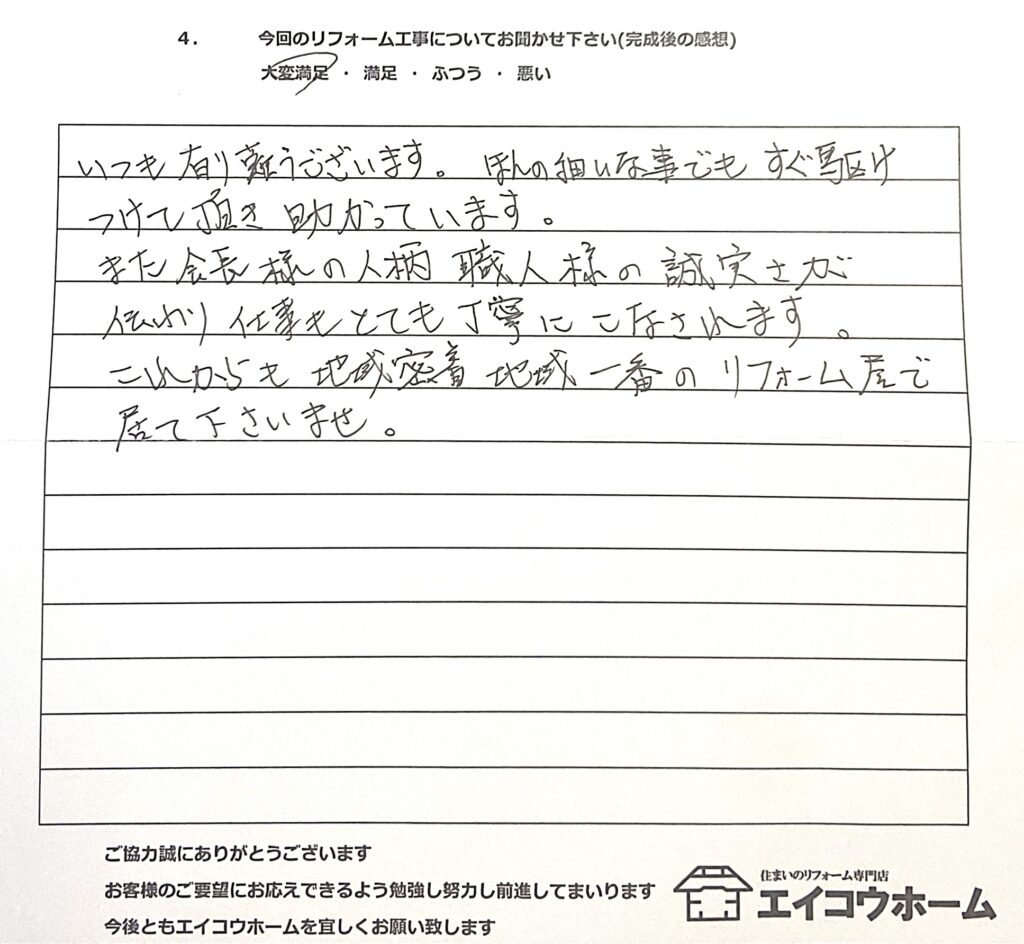 4. 今回のリフォーム工事についてお聞かせ下さい(完成後の感想)
大変満足 ・ 満足 ・ ふつう ・ 悪い
いつも有り難うございます。ほんの細いな事でもすぐ駆け
つけて頂き助かっています。
また会長様の人柄 職人様の誠実さが
伝わり仕事もとても丁寧にこなされます。
これからも地域密着 地域一番のリフォーム屋で
居て下さいませ。
ご協力誠にありがとうございます
お客様のご要望にお応えできるよう勉強し努力し前進してまいります
今後ともエイコウホームを宜しくお願い致します
住まいのリフォーム専門店
エイコウホーム